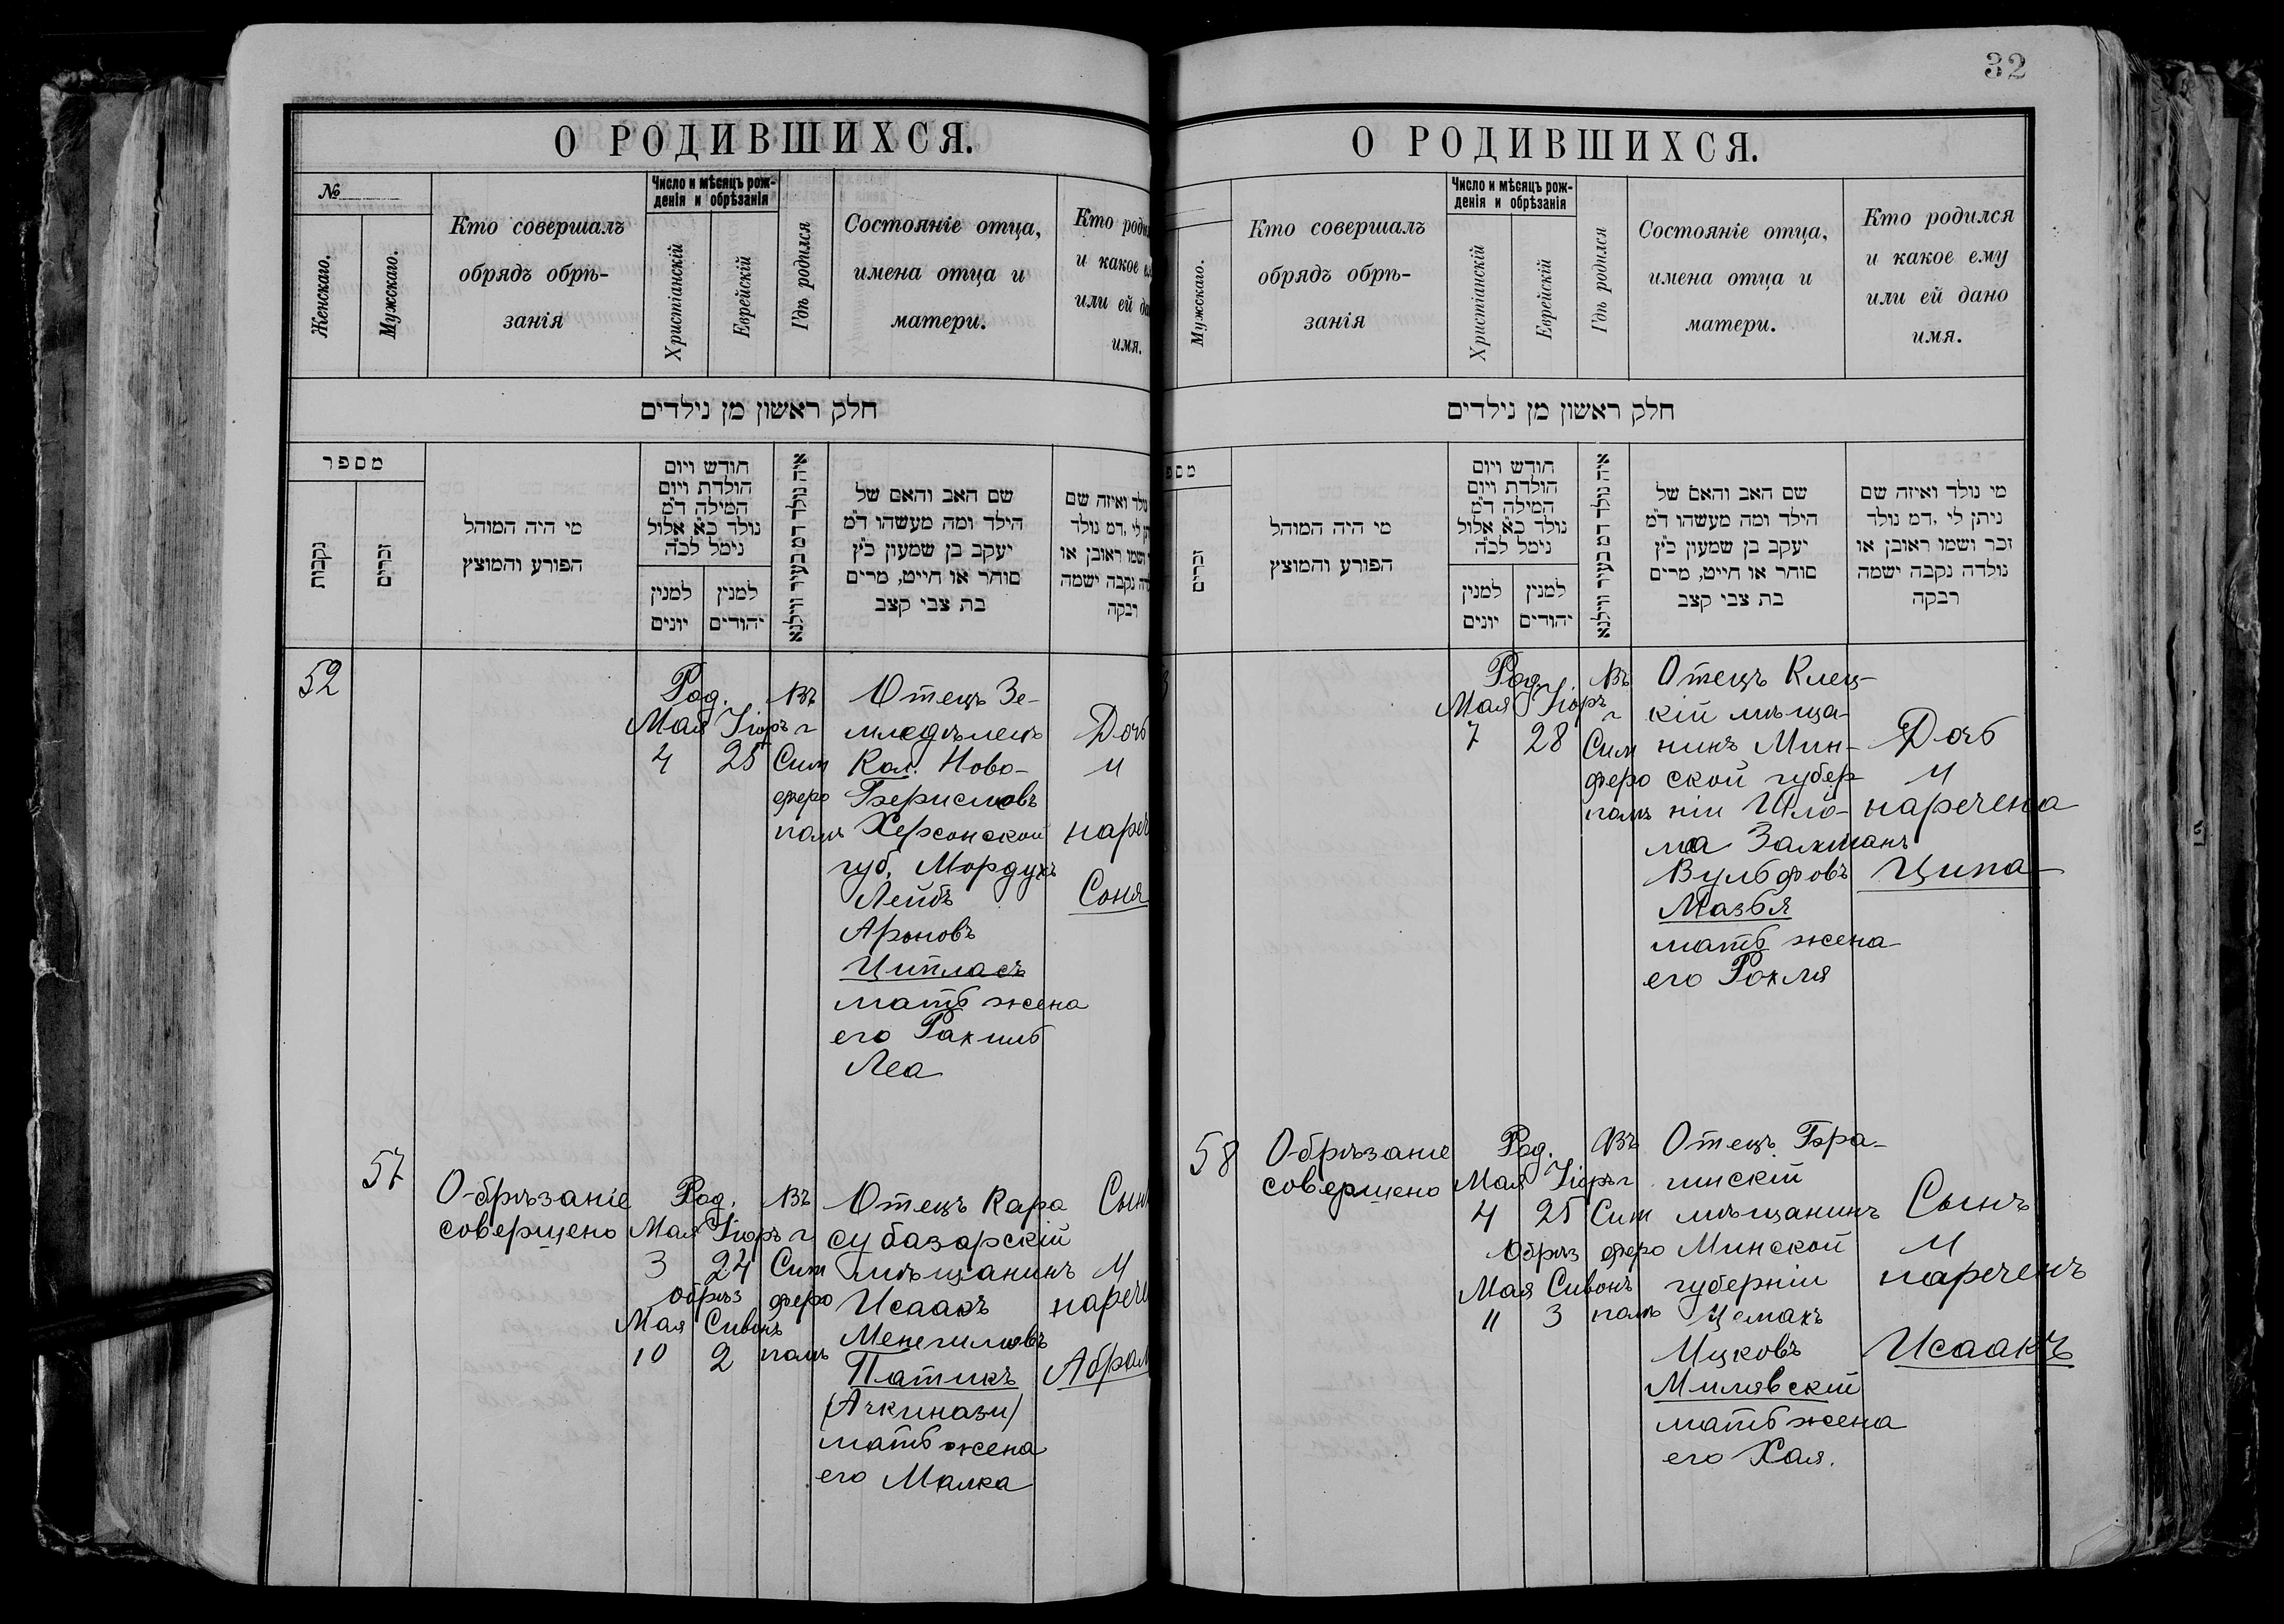 О РОДИВШИХСЯ.
№
Женскаго.
Мужскаго.
Кто совершалъ
обрядъ обрѣ-
занія
Число и мѣсяцъ рож-
денія и обрѣзанія
Христіанскій
Еврейскій
Гдѣ родился
Состояніе отца,
имена отца и
матери.
Кто роди
и какое е
или ей да
имя.
חלק ראשון מן נילדים
מספר
נקבות
זכרים
מי היה המוהל
הפורע והמוצץ
חודש ויום
הולדת ויום
המילה ד״מ
נולד כ״א אלול
נימל לכ״ה
למנין
יונים
למנין
יהודים
איה נולד דמ בעיר ווילנא
שם האב והאם של
הילד ומה מעשהו ד״מ
יעקב בן שמעון כ״ץ
סוחר או חייט, מרים
בת צבי קצב
נולד ואיזה שם
תן לי ,דמ נולד
ושמו ראובן או
דה נקבה ישמה
רבקה
52
Род.
Мая Iіоръ
4 25
Въ
г
Сим
феро
полѣ
Отецъ Зе-
мледѣлецъ
Кол. Ново-
Бериславъ
Херсонской
губ. Мордухъ
Лейбъ
Ароновъ
Циплакъ
мать жена
его Рахиль
Леа
Дочь
и
нареч
Соня
57
Обрѣзаніе
совершено
Род.
Мая Iіоръ
3 24
Обрѣз
Мая Сивонъ
10 2
Въ
г
Сим
феро
полѣ
Отецъ Кара
субазарскій
мѣщанинъ
Исаакъ
Менегимовъ
Патикъ
(Ачкинази)
мать жена
его Малка
Сынъ
и
нарече
Абрам
32
О РОДИВШИХСЯ.
Мужскаго.
Кто совершалъ
обрядъ обрѣ-
занія
Число и мѣсяцъ рож-
денія и обрѣзанія
Христіанскій
Еврейскій
Гдѣ родился
Состояніе отца,
имена отца и
матери.
Кто родился
и какое ему
или ей дано
имя.
חלק ראשון מן נילדים
מספ
זכרים
מי היה המוהל
הפורע והמוצץ
חודש ויום
הולדת ויום
המילה ד״מ
נולד כ״א אלול
נימל לכ״ה
למנין
יונים
למנין
יהודים
איה נולד דמ בעיר ווילנא
שם האב והאם של
הילד ומה מעשהו ד״מ
יעקב בן שמעון כ״ץ
סוחר או חייט, מרים
בת צבי קצב
מי נולד ואיזה שם
ניתן לי ,דמ נולד
זכר ושמו ראובן או
נולדה נקבה ישמה
רבקה
3
Род.
Мая Iіоръ
7 28
Въ
г
Сим
феро
полѣ
Отецъ Клец-
кій мѣща-
нинъ Мин-
ской губер
ніи Шло-
ма Залманъ
Вульфовъ
Мазья
мать жена
его Рохля
Дочь
и
наречена
Ципа
58
Обрѣзаніе
совершено
Род.
Мая Iіоръ
4 25
Обрѣз
Мая Сивонъ
11 3
Въ
г
Сим
феро
полѣ
Отецъ Бра-
гинскій
мѣщанинъ
Минской
губерніи
Цемахъ
Ицковъ
Милявскій
мать жена
его Хая.
Сынъ
и
нареченъ
Исаакъ